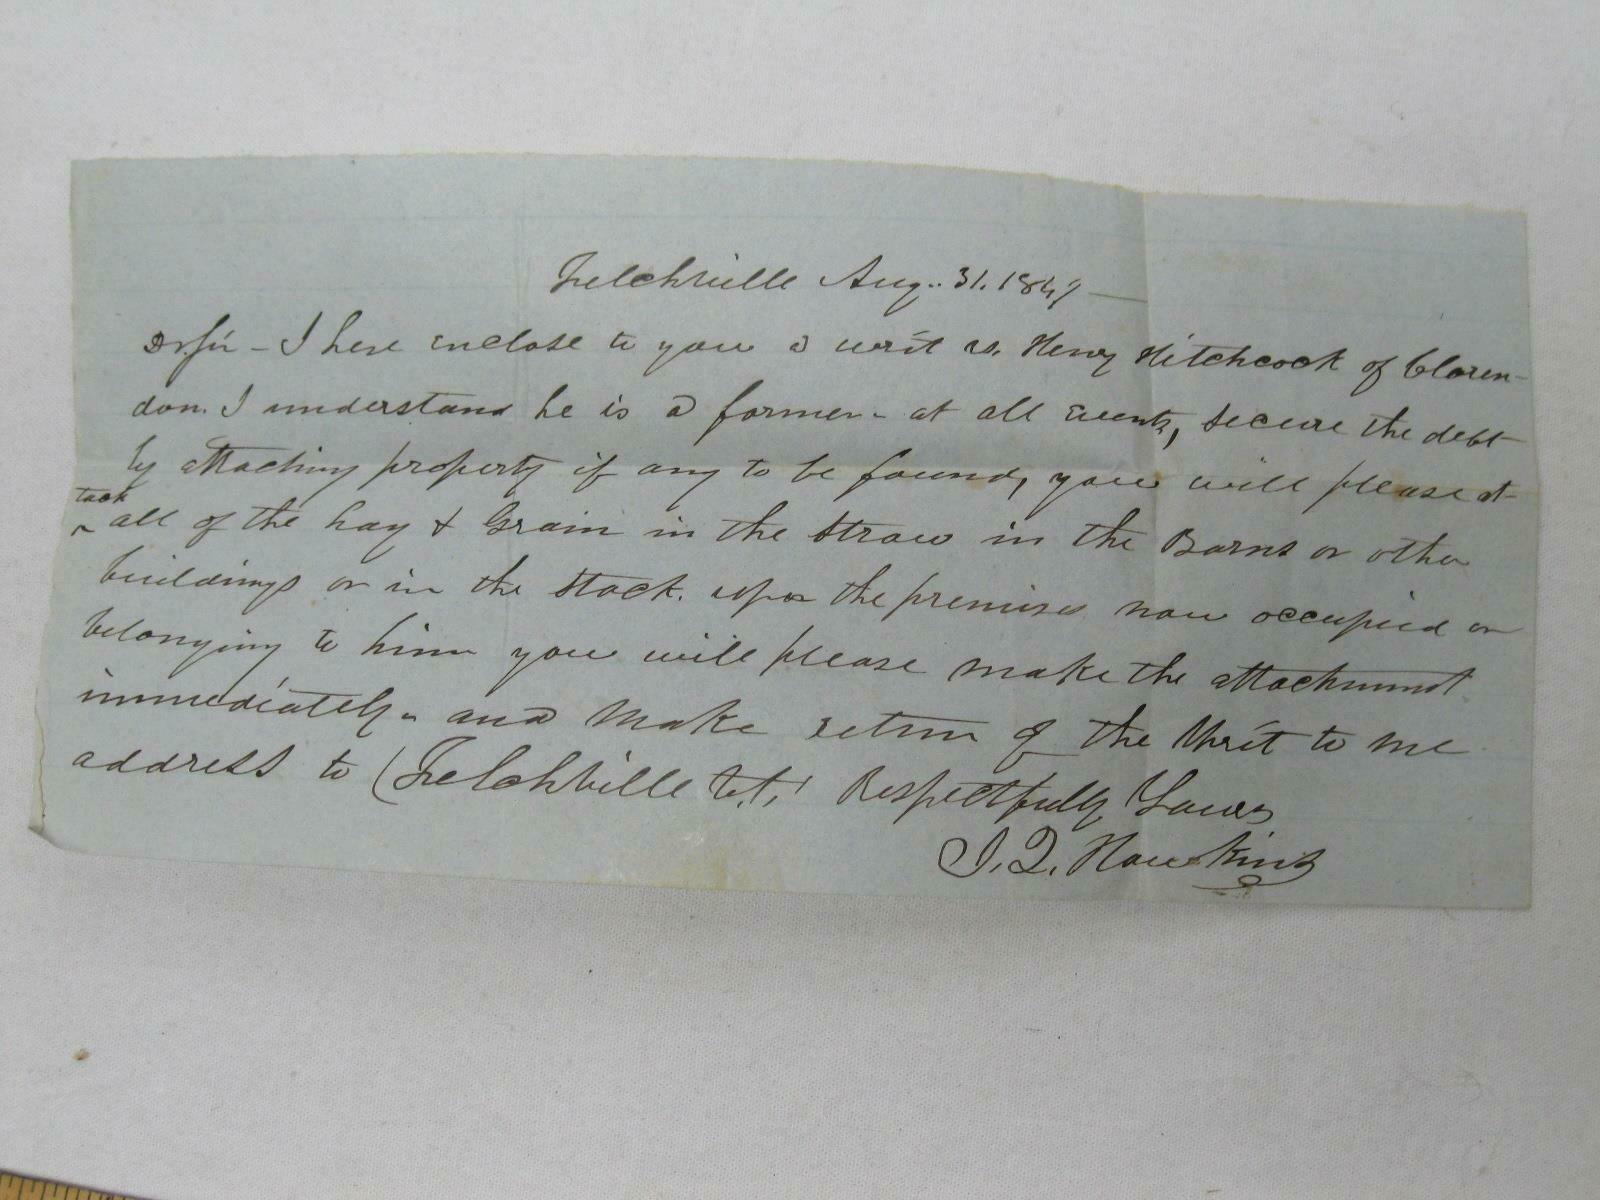 Felchville Aug. 31. 1849
Dr Sir - I here enclose to you a writ vs. Henry Hitchcock of Claren-
don. I understand he is a farmer - at all events, secure the debt
by attaching property if any to be found, you will please at-
tach
^ all of the hay & Grain in the Straw in the Barns or other
buildings or in the Stack. upon the premises now occupied or
belonging to him you will please make the attachment
immediately - and make return of the Writ to me
address to (Felchville Vt.) Respectfully Yours
J. Q. Hawkins